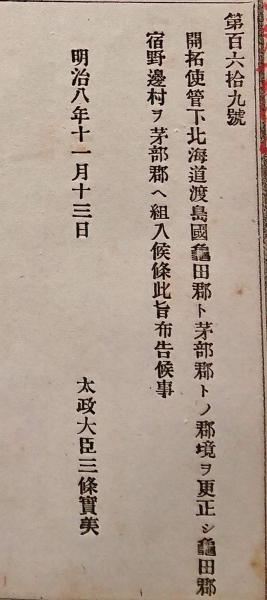 第百六拾九號
開拓使管下北海道渡島國龜田郡ト茅部郡トノ郡境ヲ更正シ龜田郡
宿野邊村ヲ茅部郡ヘ組入候條此旨布告候事
明治八年十一月十三日
太政大臣三條實美